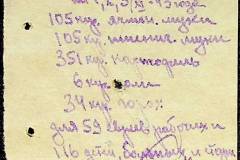 1, 2, 3/XI-43 года
105 кгр. ячмен. муки
105 кгр. пшенич. муки
351 кгр. картофель
6 кгр. соли
34 кгр. горох
для 59 евреев рабочих и
116 детей, больных и стари